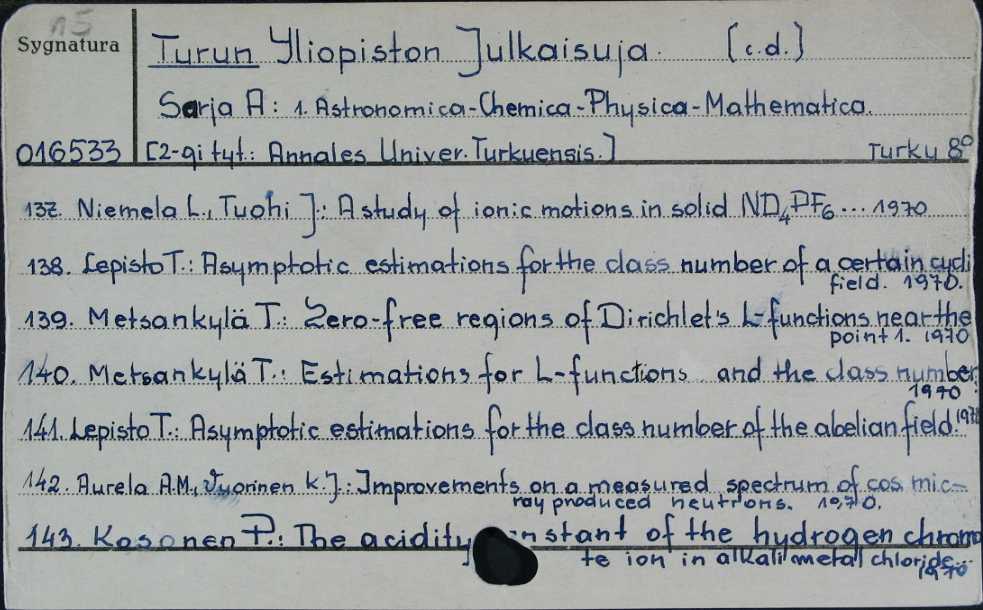 15
Sygnatura
Turun Yliopiston Julkaisuja. [c.d.]
Sarja A: 1. Astronomica-Chemica-Physica-Mathematica.
016533 [2-gi tyt.: Annales Univer. Turkuensis.] Turku 8°
137. Niemela L., Tuohi J.: A study of ionic motions in solid ND4PF6 ... 1970
138. Lepisto T.: Asymptotic estimations for the class number of a certain cycli
field. 1970.
139. Metsankylä T.: Zero-free regions of Dirichlet's L-functions near the
point 1. 1970
140. Metsankylä T.: Estimations for L-functions and the class number
1970
141. Lepisto T.: Asymptotic estimations for the class number of the abelian field.
142. Aurela A.M., Vuorinen K.J.: Improvements on a measured spectrum of cos mic-
ray produced neutrons. 1970.
143. Kosonen P.: The acidity nstant of the hydrogen chroma
te ion in alkali metal chloride...
1970